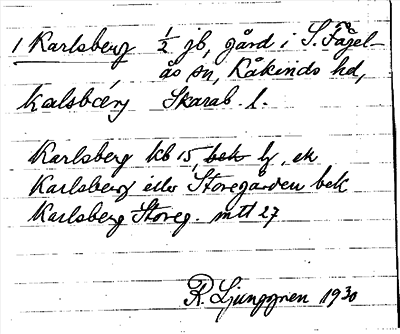 1 Karlsberg 1/2 jb, gård i S. Fågel-
ås sn, Kåkinds hd,
kalsbærj Skarab. l.
Karlsberg kb 15, bek lj, ek
Karlsberg eller Storegården bek
Karlsberg Storeg. mtl 27
R. Ljunggren 1930